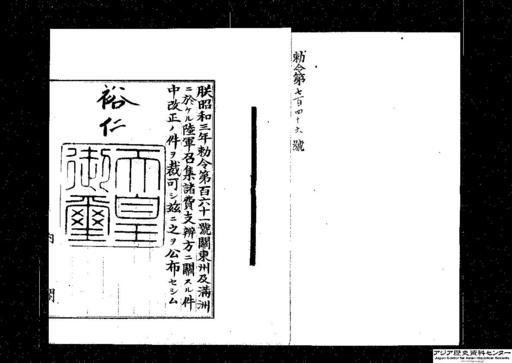 勅令第七百四十六號
朕昭和三年勅令第百六十一號關東州及滿洲
ニ於ケル陸軍召集諸費支辨方ニ關スル件
中改正ノ件ヲ裁可シ茲ニ之ヲ公布セシム
裕仁
天皇御璽
内閣
アジア歴史資料センター
Japan Center for Asian Historical Records